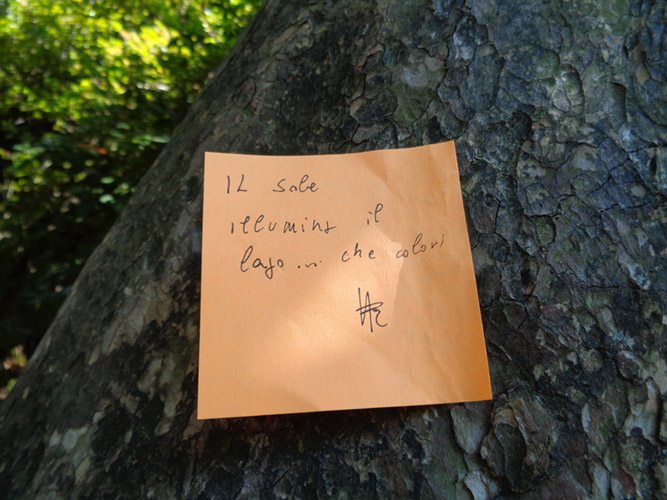 IL sole
illumina il
lago ... che colori